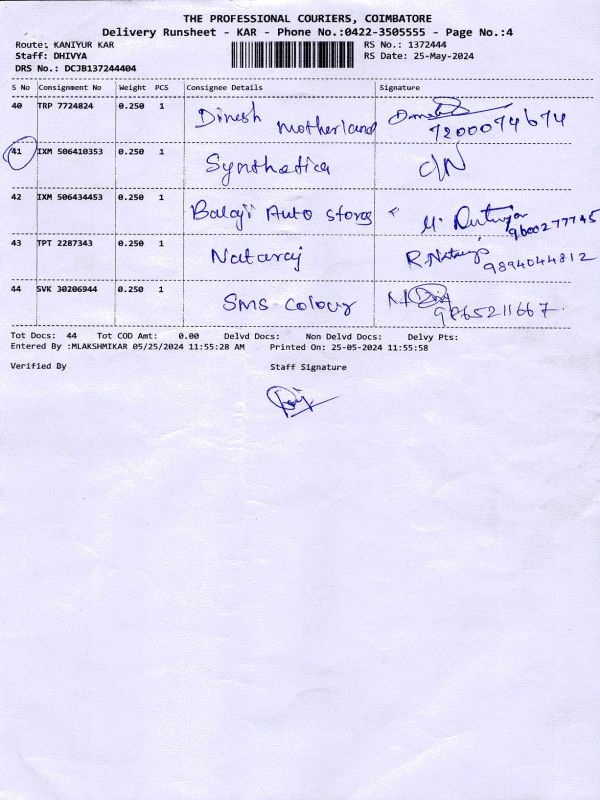 THE PROFESSIONAL COURIERS, COIMBATORE
Delivery Runsheet - KAR - Phone No.:0422-3505555 - Page No.:4
Route: KANIYUR KAR RS No.: 1372444
Staff: DHIVYA RS Date: 25-May-2024
DRS No.: DCJB137244404
S No Consignment No Weight PCS Consignee Details Signature
40 TRP 7724824 0.250 1 Dinesh motherland
7200074674
41 IXM 506410353 0.250 1 Synthetica C/N
42 IXM 506434453 0.250 1 Balaji Auto stores
9600277745
43 TPT 2287343 0.250 1 Nataraj R. Nataraj
9894044812
44 SVK 30206944 0.250 1 SMS colour
9865211667.
Tot Docs: 44 Tot COD Amt: 0.00 Delvd Docs: Non Delvd Docs: Delvy Pts:
Entered By :MLAKSHMIKAR 05/25/2024 11:55:28 AM Printed On: 25-05-2024 11:55:58
Verified By Staff Signature